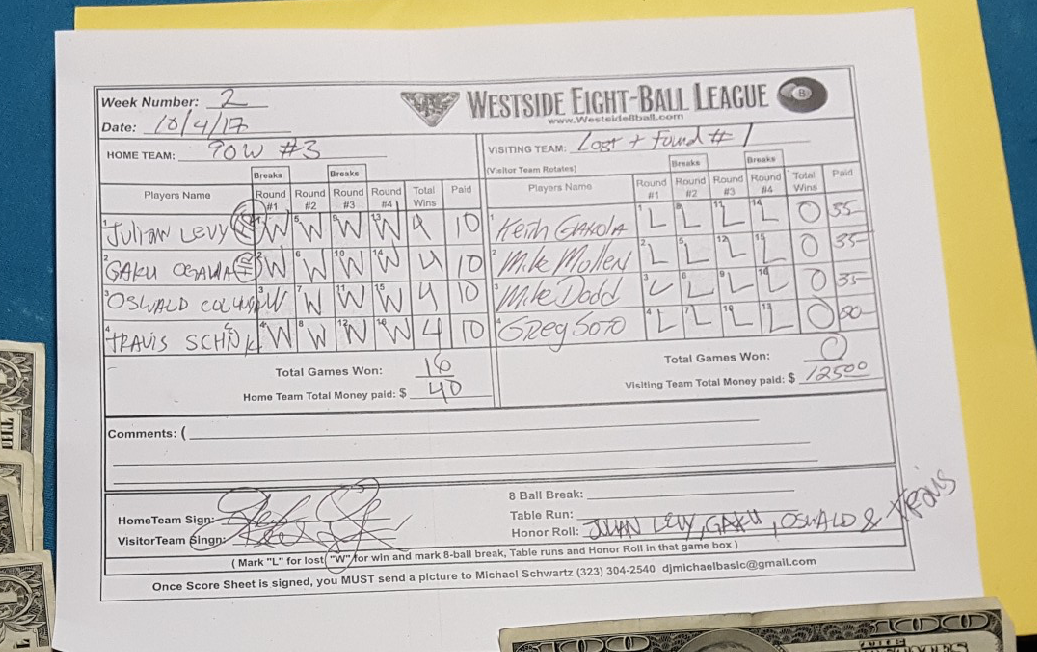 Week Number: 2
WESTSIDE EIGHT-BALL LEAGUE
www.Westside8ball.com
Date: 10/4/17
HOME TEAM: POW #3
VISITING TEAM: Lost + Found #1
(Visitor Team Rotates)
Breaks Breaks Breaks Breaks
Players Name Round #1 Round #2 Round #3 Round #4 Total Wins Paid Players Name Round #1 Round #2 Round #3 Round #4 Total Wins Paid
1 JULIAN LEVY W 5 W 9 W 13 W 4 10 1 Keith 1 L 8 L 11 L 14 L 0 35
2 GAKU OGAWA 2 W 6 W 10 W 14 W 4 10 2 Mike Mollen 2 L 5 L 12 L 15 L 0 35
3 OSWALD 3 W 7 W 11 W 15 W 4 10 3 Mike Dodd 3 L 6 L 9 L 16 L 0 35
4 TRAVIS 4 W 8 W 12 W 16 W 4 10 4 Greg Soto 4 L 7 L 10 L 13 L 0
Total Games Won: 16
Total Games Won: 0
Home Team Total Money paid: $ 40
Visiting Team Total Money paid: $ 12500
Comments: (
8 Ball Break:
HomeTeam Sign:
Table Run:
VisitorTeam Singn:
Honor Roll: JUAN LEVY, GAKU, OSWALD & TRAVIS
( Mark "L" for lost "W" for win and mark 8-ball break, Table runs and Honor Roll in that game box )
Once Score Sheet is signed, you MUST send a picture to Michael Schwartz (323) 304-2540 djmichaelbasic@gmail.com
100
100